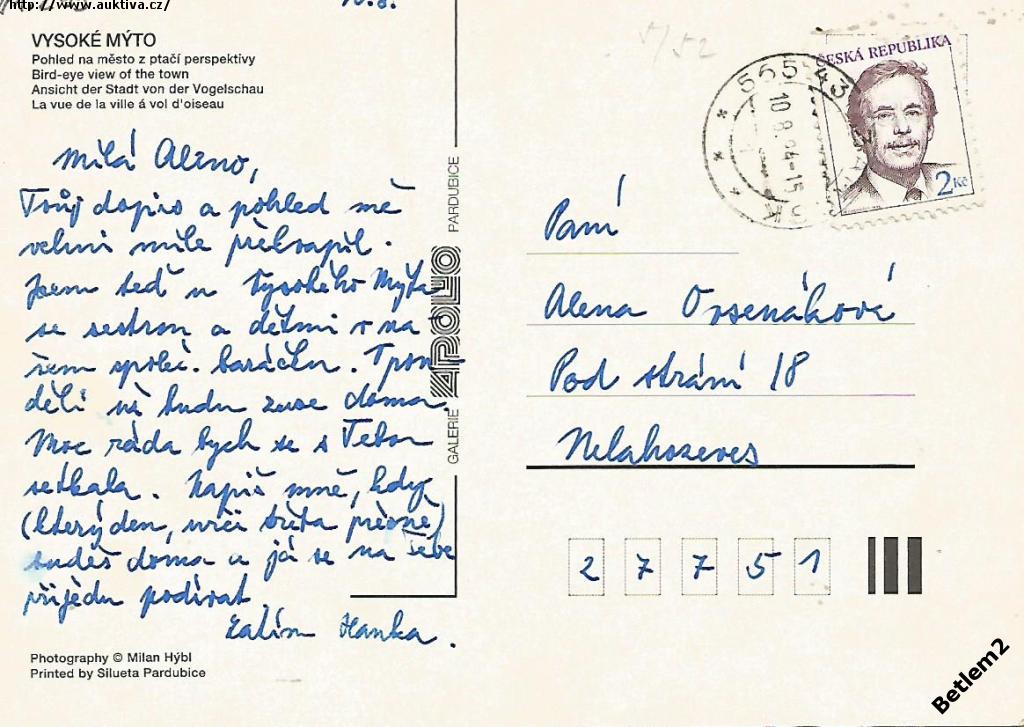 http://www.auktiva.cz/
10.8.
VYSOKÉ MÝTO
Pohled na město z ptačí perspektivy
Bird-eye view of the town
Ansicht der Stadt von der Vogelschau
La vue de la ville á vol d'oiseau
Milá Aleno,
Tvůj dopis a pohled mě
velmi mile překvapil.
Jsem teď u Vysokého Mýta
se sestrou a dětmi v na
šem společ. baráčku. V pon
dělí už budu zase doma.
Moc ráda bych se s Tebou
setkala. Napiš mně, kdy
(který den, určitě přesně)
budeš doma a já se na Tebe
přijedu podívat.
Zatím Hanka.
Photography © Milan Hýbl
Printed by Silueta Pardubice
GALERIE APOLLO PARDUBICE
5/52
565 43
10.8.94-15
ČESKÁ REPUBLIKA
2 Kč
Paní
Alena
Pod strání 18
Nelahozeves
2 7 7 5 1
Betlem2